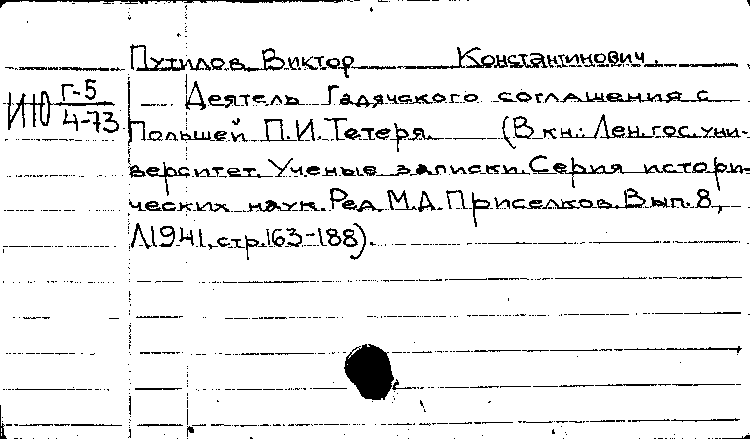 Путилов Виктор Константинович.
ИЮ Г-5/4-73
Деятель Гадячского соглашения с
Польшей П.И.Тетеря. (В кн.: Лен.гос.уни-
верситет. Ученые записки. Серия истори-
ческих наук. Ред. М.Д.Приселков. Вып. 8,
Л1941, стр.163-188).